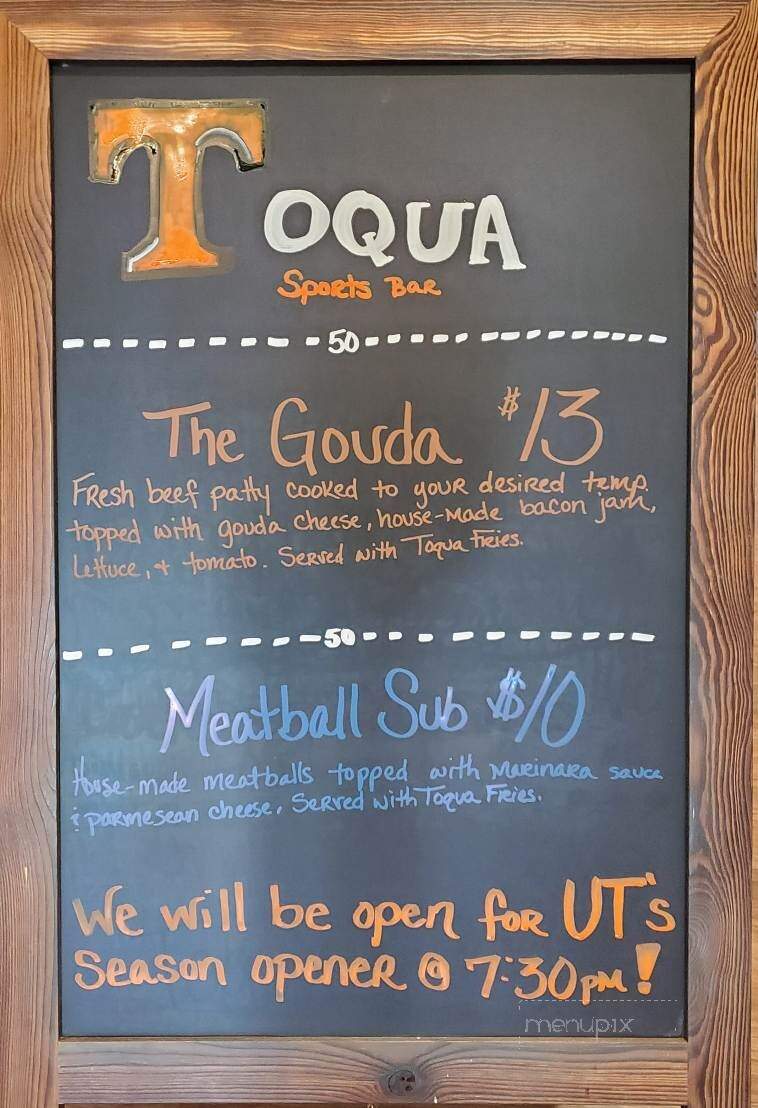 TOQUA
Sports Bar
50
The Gouda $13
Fresh beef patty cooked to your desired temp.
topped with gouda cheese, house-made bacon jam,
lettuce, + tomato. Served with Toqua Fries.
50
Meatball Sub $10
House-made meatballs topped with marinara sauce
& parmesean cheese. Served with Toqua Fries.
We will be open for UT's
Season opener @ 7:30pm!
menupix